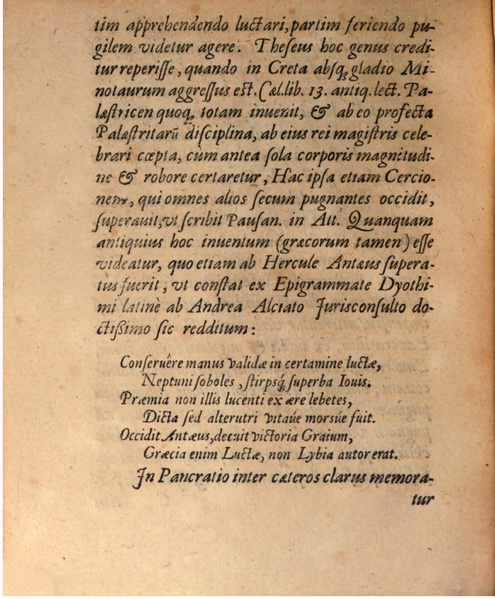 tim apprehendendo luctari, partim feriendo pu-
gilem videtur agere. Theseus hoc genus credi-
tur reperiſſe, quando in Creta absq́; gladio Mi-
notaurum aggreſſus est. Cæl. lib. 13. antiq. lect. Pa-
læstricen quoq́; totam inuenit, & ab eo profecta
Palæstritarũ diſciplina, ab eius rei magiſtris cele-
brari cœpta, cum antea ſola corporis magnitudi-
ne & robore certaretur, Hac ipſa etiam Cercio-
nem, qui omnes alios ſecum pugnantes occidit,
ſuperauit, vt ſcribit Pauſan. in Att. Quanquam
antiquius hoc inuentum (græcorum tamen) eſſe
videatur, quo etiam ab Hercule Antæus ſupera-
tus fuerit, vt conſtat ex Epigrammate Dyothi-
mi latinè ab Andrea Alciato Jurisconſulto do-
ctißimo ſic redditum:
Conſeruêre manus validæ in certamine luctæ,
Neptuni ſoboles, ſtirpsq́; ſuperba Iouis.
Præmia non illis lucenti ex ære lebetes,
Dicta ſed alterutri vitaúe morsúe fuit.
Occidit Antæus, decuit victoria Graium,
Græcia enim Luctæ, non Lybia autor erat.
In Pancratio inter cæteros clarus memora-
tur